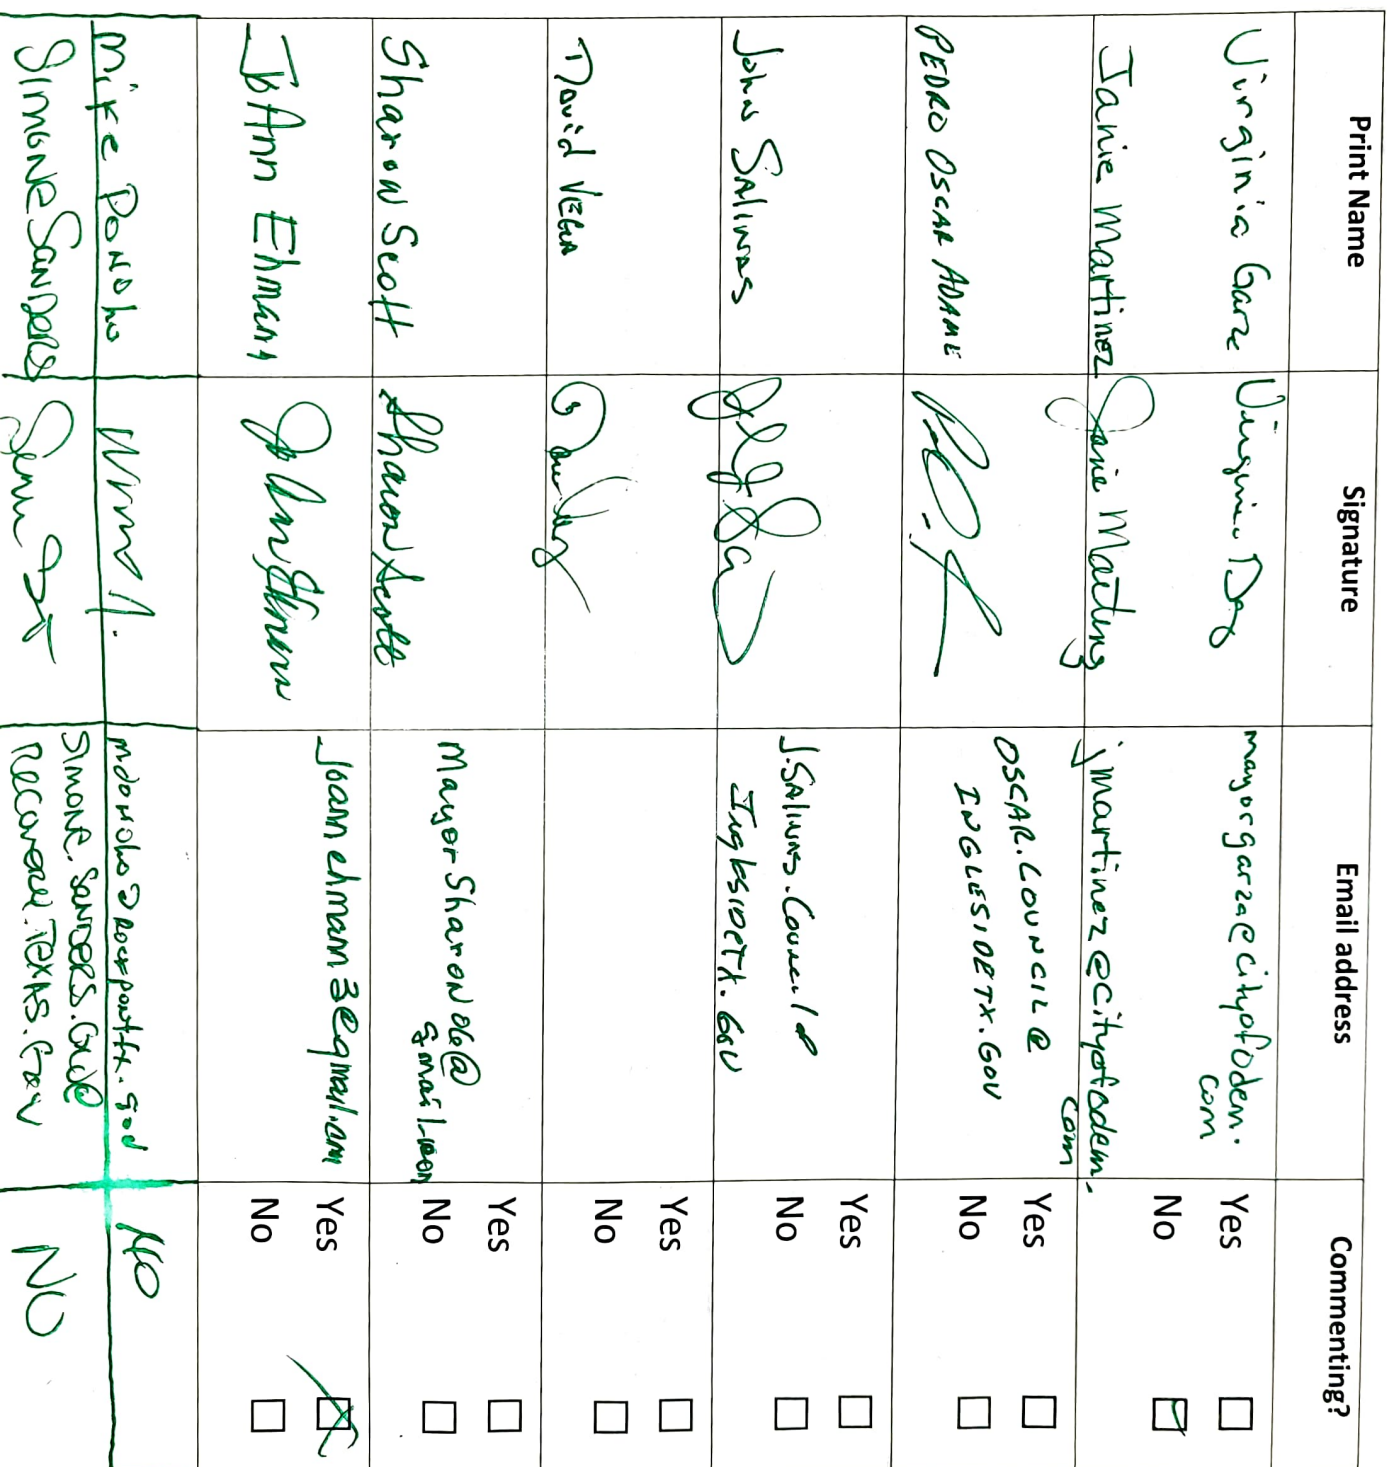 Print Name Signature Email address Commenting?
Virginia Garza mayorgarza@cityofodem.
com
Yes
No
Janie Martinez Janie Martinez jmartinez@cityofodem.
com
PEDRO OSCAR ADAME OSCAR.COUNCIL@
INGLESIDETX.GOV
Yes
No
John SALINAS J.SALINAS.Council@
InglesIDETX.GOV
Yes
No
David VEGA
Yes
No
Sharon Scott Sharon Scott MayorSharon06@
gmail.com
Yes
No
JoAnn Ehmann JoAnn Ehmann Joannehmann3@gmail.com
Yes
No
Mike Donoho mdonoho@rockporttx.gov NO
SIMONE SANDERS SIMONE.SANDERS.GLO@
RECOVERY.TEXAS.GOV
NO